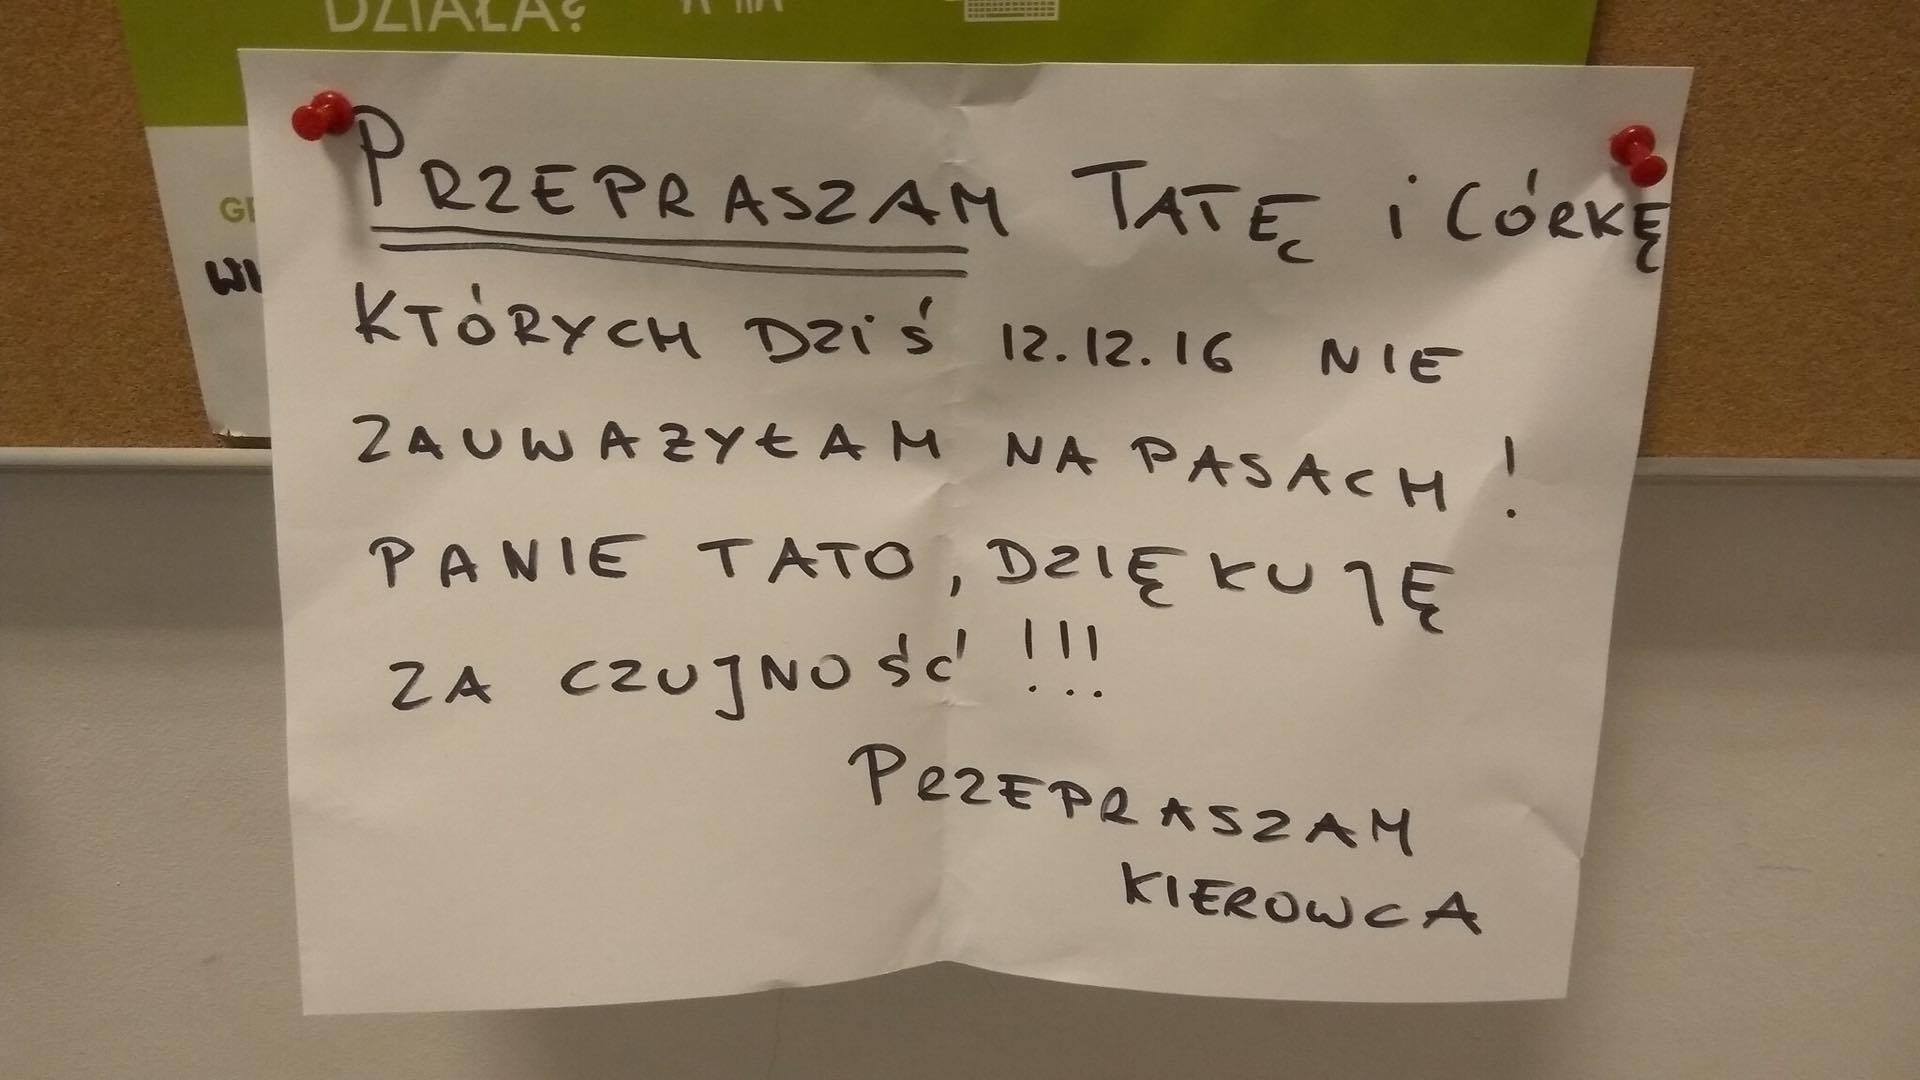 DZIAŁA?
PRZEPRASZAM TATĘ i CÓRKĘ
KTÓRYCH DZiŚ 12.12.16 NIE
ZAUWAZYŁAM NA PASACH!
PANIE TATO, DZIĘKUJĘ
ZA CZUJNOŚĆ!!!
PRZEPRASZAM
KIEROWCA